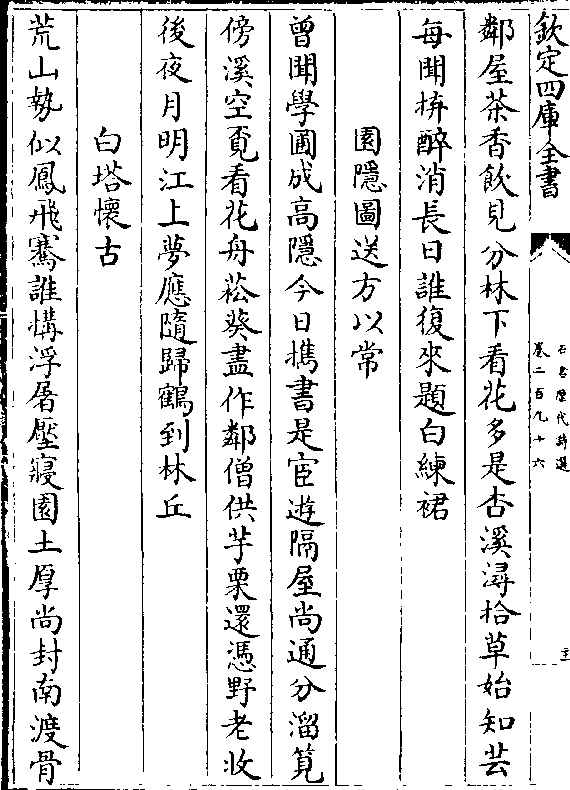 欽定四庫全書
石倉歴代詩選
卷二百九十六
鄰屋茶香飲見分林下看花多是杏溪潯拾草始知芸
每聞拚醉消長日誰復來題白練裙
園隱圖送方以常
曾聞學圃成高隱今日携書是宦遊隔屋尚通分溜筧
傍溪空覔看花舟菘葵盡作鄰僧供芋栗還憑野老收
後夜月明江上夢應隨歸鶴到林丘
白塔懷古
荒山勢似鳳飛騫誰構浮屠壓寢園土厚尚封南渡骨